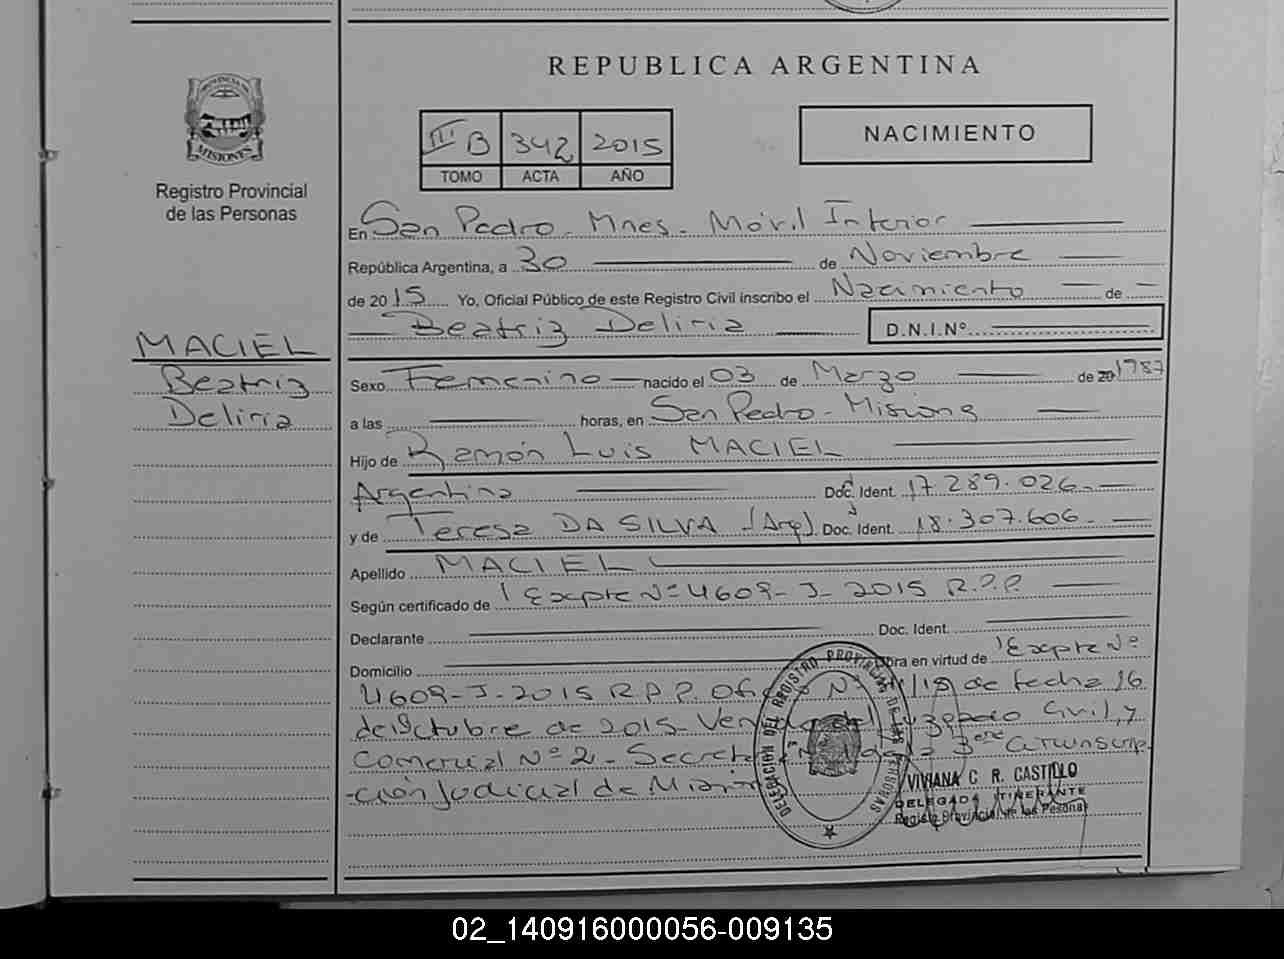 REPUBLICA ARGENTINA
PROVINCIA DE
MISIONES
Registro Provincial
de las Personas
III B 342 2015
TOMO ACTA AÑO
NACIMIENTO
En San Pedro - Mnes - Móvil Interior
República Argentina, a 30 de Noviembre
de 2015 Yo, Oficial Público de este Registro Civil inscribo el Nacimiento de
Beatriz Deliria D.N.I.Nº
MACIEL
Beatriz
Deliria
Sexo Femenino nacido el 03 de Marzo de 20 1987
a las horas, en San Pedro - Misiones
Hijo de Ramón Luis MACIEL
Argentina Doc. Ident. 17.289.026.
y de Teresa DA SILVA (Arg). Doc. Ident. 18.307.606.
Apellido MACIEL
Según certificado de Expte Nº 4609-J-2015 R.P.P.
Declarante Doc. Ident.
Domicilio Obra en virtud de Expte Nº
4609-J-2015 R.P.P. Oficio Nº de fecha 16
de Octubre de 2015 - Juzgado Civil, y
Comercial Nº 2 - 3era Circunscrip-
-ción Judicial de Misiones
DELEGACION DEL REGISTRO PROVINCIAL DE LAS PERSONAS
VIVIANA C. R. CASTILLO
DELEGADA ITINERANTE
Registro Provincial de las Pesonas
02_140916000056-009135